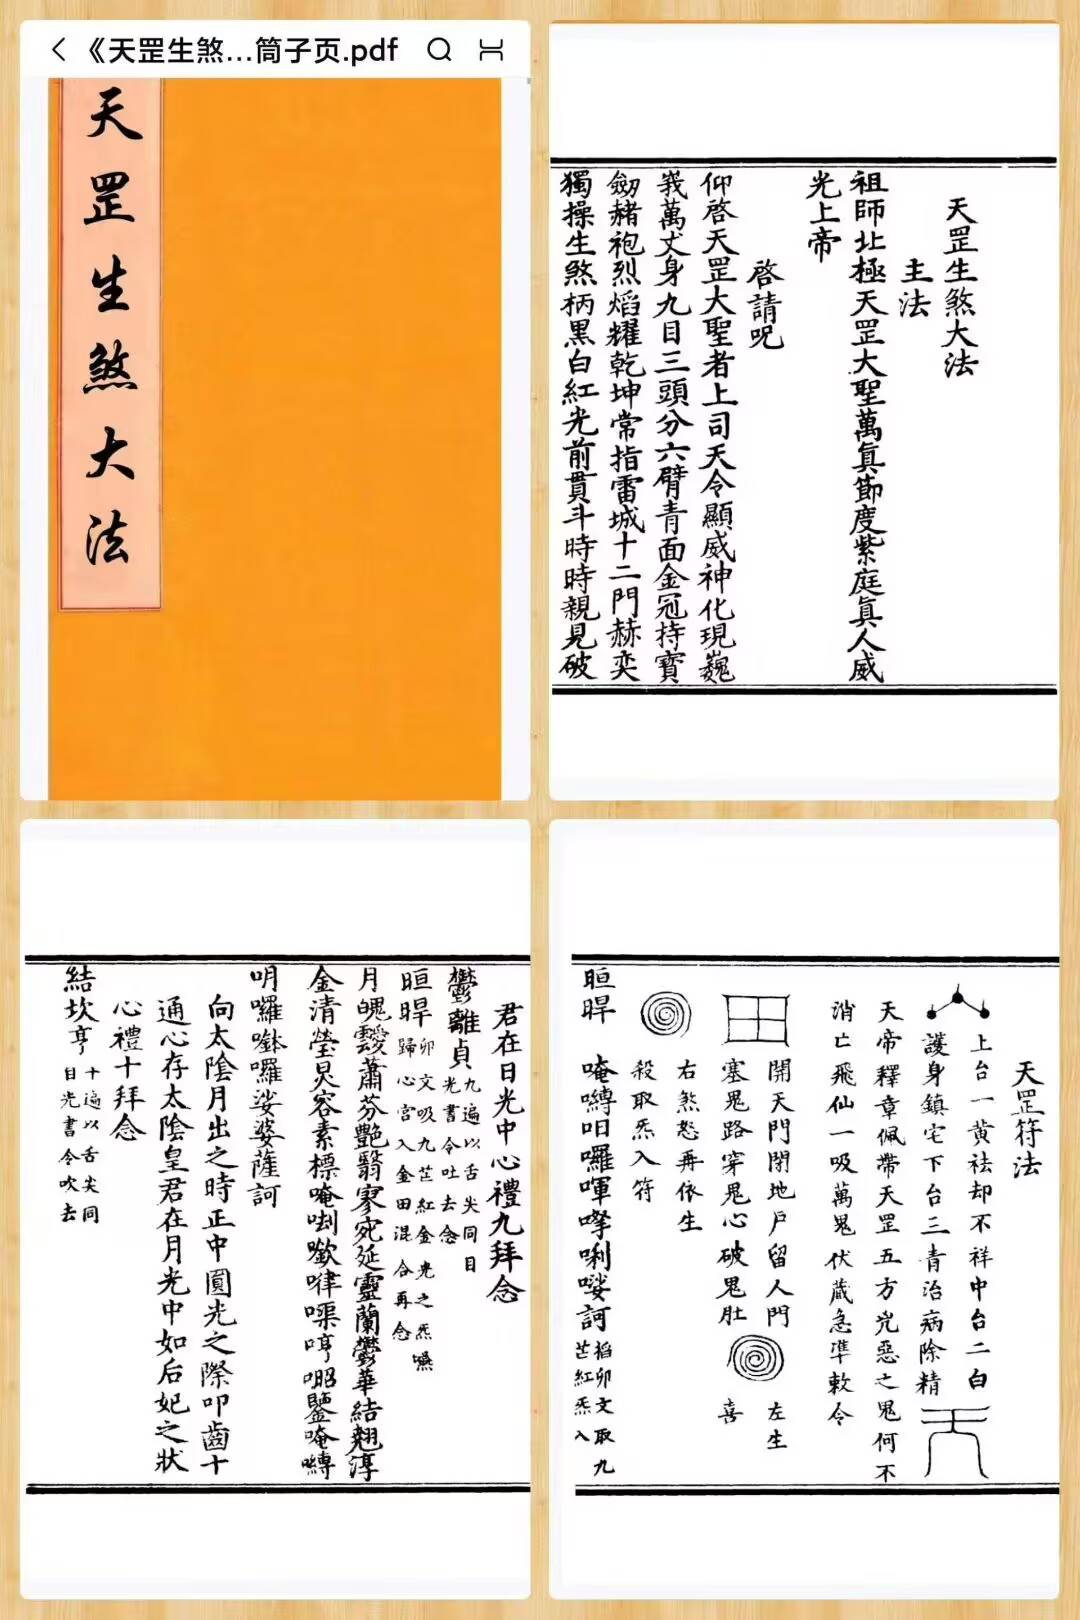 《天罡生煞...筒子页.pdf
天罡生煞大法
天罡生煞大法
主法
祖師北極天罡大聖萬真節度紫庭真人威
光上帝
啓請呪
仰啓天罡大聖者上司天令顯威神化現巍
峩萬丈身九目三頭分六臂青面金冠持寶
劒赭袍烈焰耀乾坤常指雷城十二門赫奕
獨操生煞柄黑白紅光前貫斗時時親見破
君在日光中心禮九拜念
鬱離貞九遍以舌尖同日光書令吐去念
晅晘卯文吸九芒紅金光之炁嚥歸心宮入金田混合再念
月魄靉蕭芬艷翳寥宛延靈蘭鬱華結翹淳
金清瑩炅容素標唵
明囉㘄囉娑婆薩訶
向太陰月出之時正中圓光之際叩齒十
通心存太陰皇君在月光中如后妃之狀
心禮十拜念
結坎亨十遍以舌尖同日光書令吹去
天罡符法
上台一黄祛却不祥中台二白
護身鎮宅下台三青治病除精
天帝釋章佩帶天罡五方兇惡之鬼何不
消亡飛仙一吸萬鬼伏藏急準敕令
開天門閉地戶留人門
塞鬼路穿鬼心破鬼肚
左生
喜
右煞怒再依生
殺取炁入符
晅晘
唵嚩呬囉喗㗚唎娑訶招卯文取九芒紅炁入